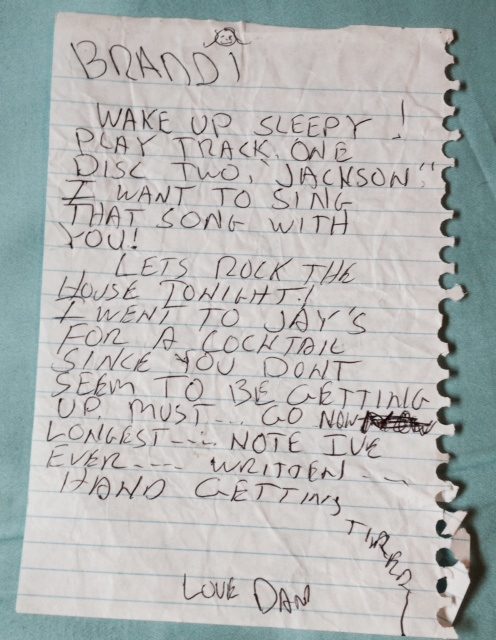 BRANDI
WAKE UP SLEEPY !
PLAY TRACK ONE
DISC TWO, "JACKSON."
I WANT TO SING
THAT SONG WITH
YOU!
LETS ROCK THE
HOUSE TONIGHT!
I WENT TO JAY'S
FOR A COCKTAIL
SINCE YOU DONT
SEEM TO BE GETTING
UP. MUST... GO NOW
LONGEST.... NOTE IVE
EVER.... WRITTEN ....
HAND GETTING
TIRRED
LOVE DAN